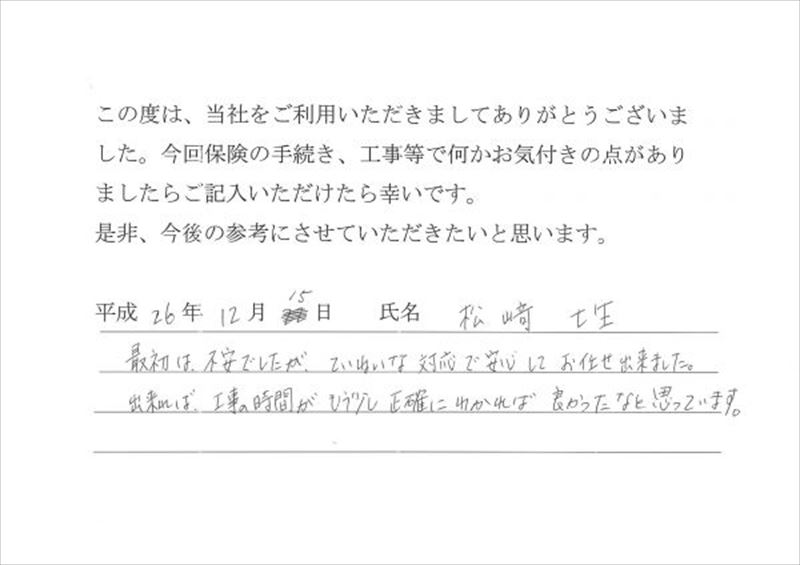 この度は、当社をご利用いただきましてありがとうございま
した。今回保険の手続き、工事等で何かお気付きの点があり
ましたらご記入いただけたら幸いです。
是非、今後の参考にさせていただきたいと思います。
平成 26 年 12 月 15 日 氏名 松﨑
最初は、不安でしたが、ていねいな対応で安心してお任せ出来ました。
出来れば、工事の時間がもう少し正確にわかれば良かったなと思っています。